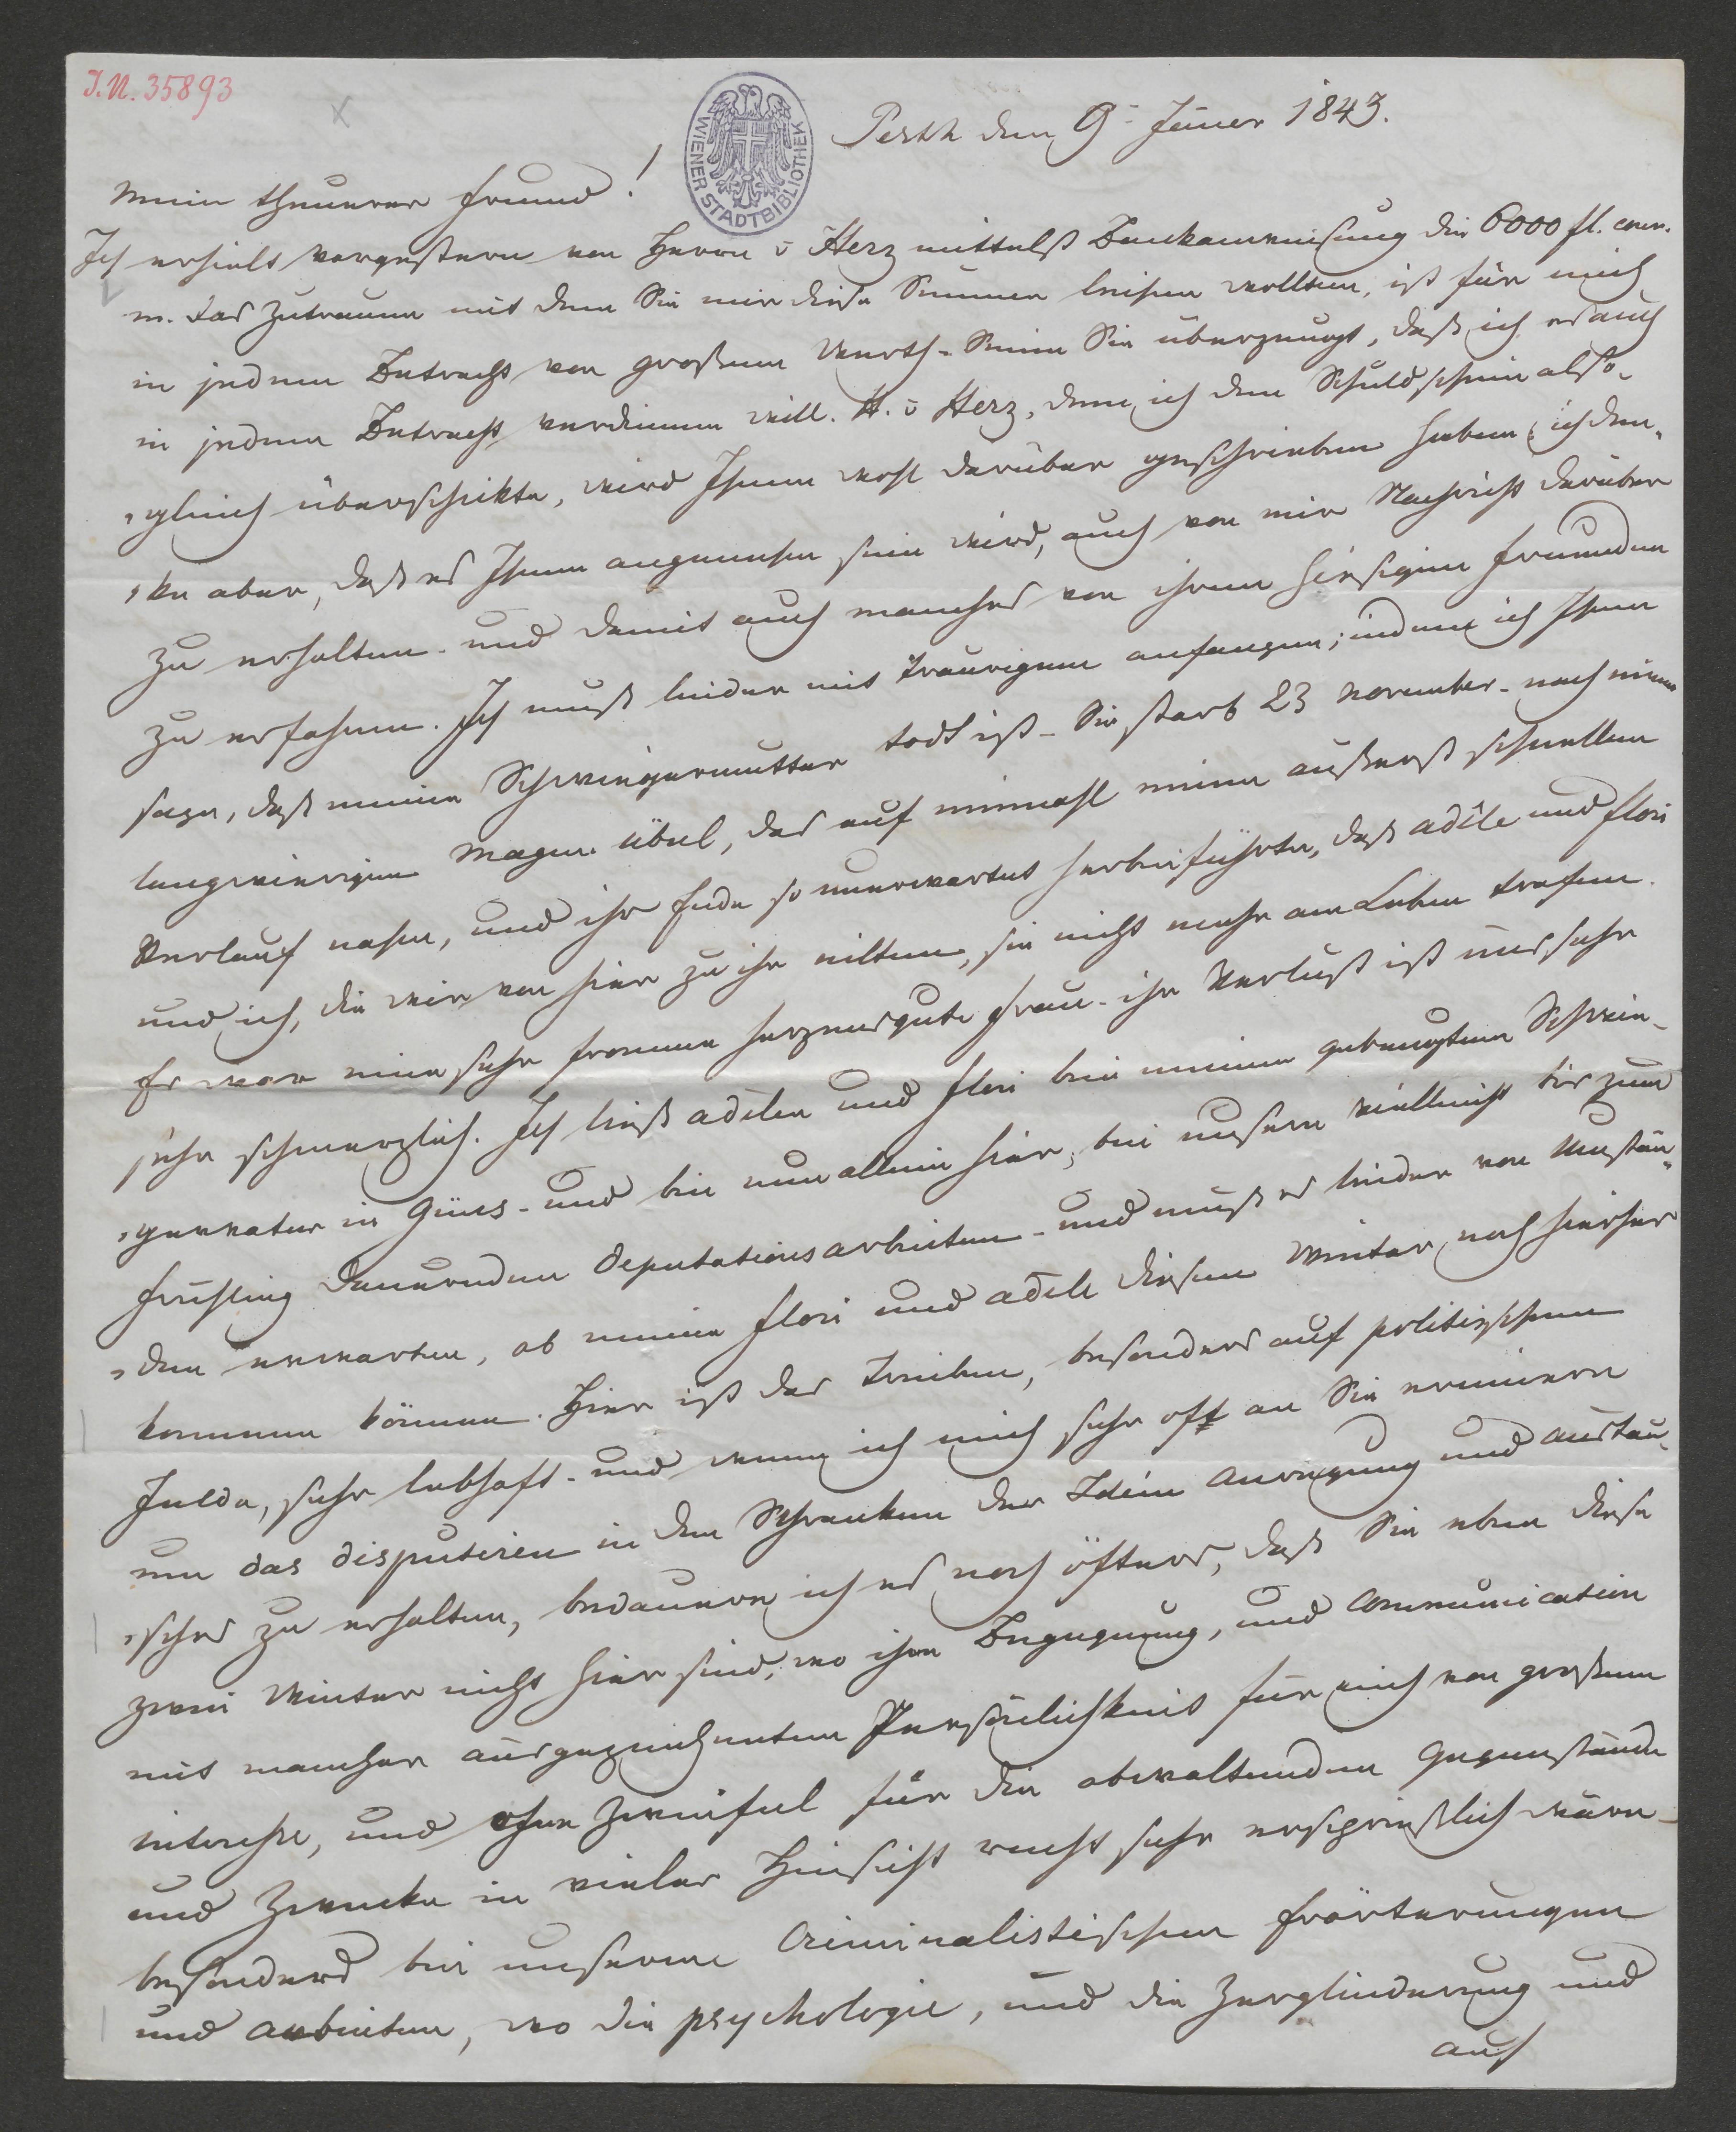 J.N. 35893
WIENER STADTBIBLIOTHEK
Pesth den 9 Jäner 1843.
Mein theuerer Freund!
Ich erhielt vorgestern von Herrn v Herz mittelst Bankanweisung die 6000 fl. conv.
m. das Zutrauen mit dem Sie mir diese Summe leihen wollten, ist für mich
in jedem Betracht von großem Werth - Seien Sie überzeugt, daß ich es auch
in jedem Betracht verdienen will. H. v Herz, dem ich den Schuldschein also„
„gleich überschikte, wird Ihnen wohl darüber geschrieben haben, ich den„
„ke aber, daß es Ihnen angenehm sein wird, auch von mir Nachricht darüber
zu erhalten - und damit auch manches von ihren hiesigen Freunden
zu erfahren. Ich muß leider mit traurigem anfangen; indem ich Ihnen
sage, daß meine Schwiegermutter todt ist - Sie starb 23 November - nach einem
langwierigen Magen übel, das auf einmahl einen äußerst schnellen
Verlauf nahm, und ihr Ende so unerwartet herbeiführte, daß Adèle und Flori
und ich, die wir von hier zu ihr eilten, sie nicht mehr am Leben trafen.
Es war eine sehr fromme herzensgute Frau - ihr Verlust ist uns sehr
sehr schmerzlich. Ich ließ Adèlen und Flori bei meinem gebeugten Schwie„
„gervater in Güns - und bin nun allein hier, bei unsern vielleicht bis zum
Frühling dauernden Deputationsarbeiten - und muß es leider von Umstän„
„den erwarten, ob meine Flori und Adele diesen Winter noch hierher
kommen können. Hier ist das Treiben, besonders auf politischem
Felde, sehr lebhaft - und wenn ich mich sehr oft an Sie erinnere
um das disputiren in den Schranken der Ideen Anregung und Austau„
„sches zu erhalten, bedauere ich es noch öfters, daß Sie eben diese
zwei Winter nicht hier sind, wo ihre Begegnung, und Communication
mit mancher ausgezeichneten Persönlichkeit für mich von großem
Interesse, und ohne Zweifel für die obwaltenden Gegenstände
und Zwecke in vieler Hinsicht recht sehr ersprießlich wäre -
besonders bei unseren Criminalistischen Erörterungen
und Arbeiten, wo die psychologie, und die Zergliederung und
auf